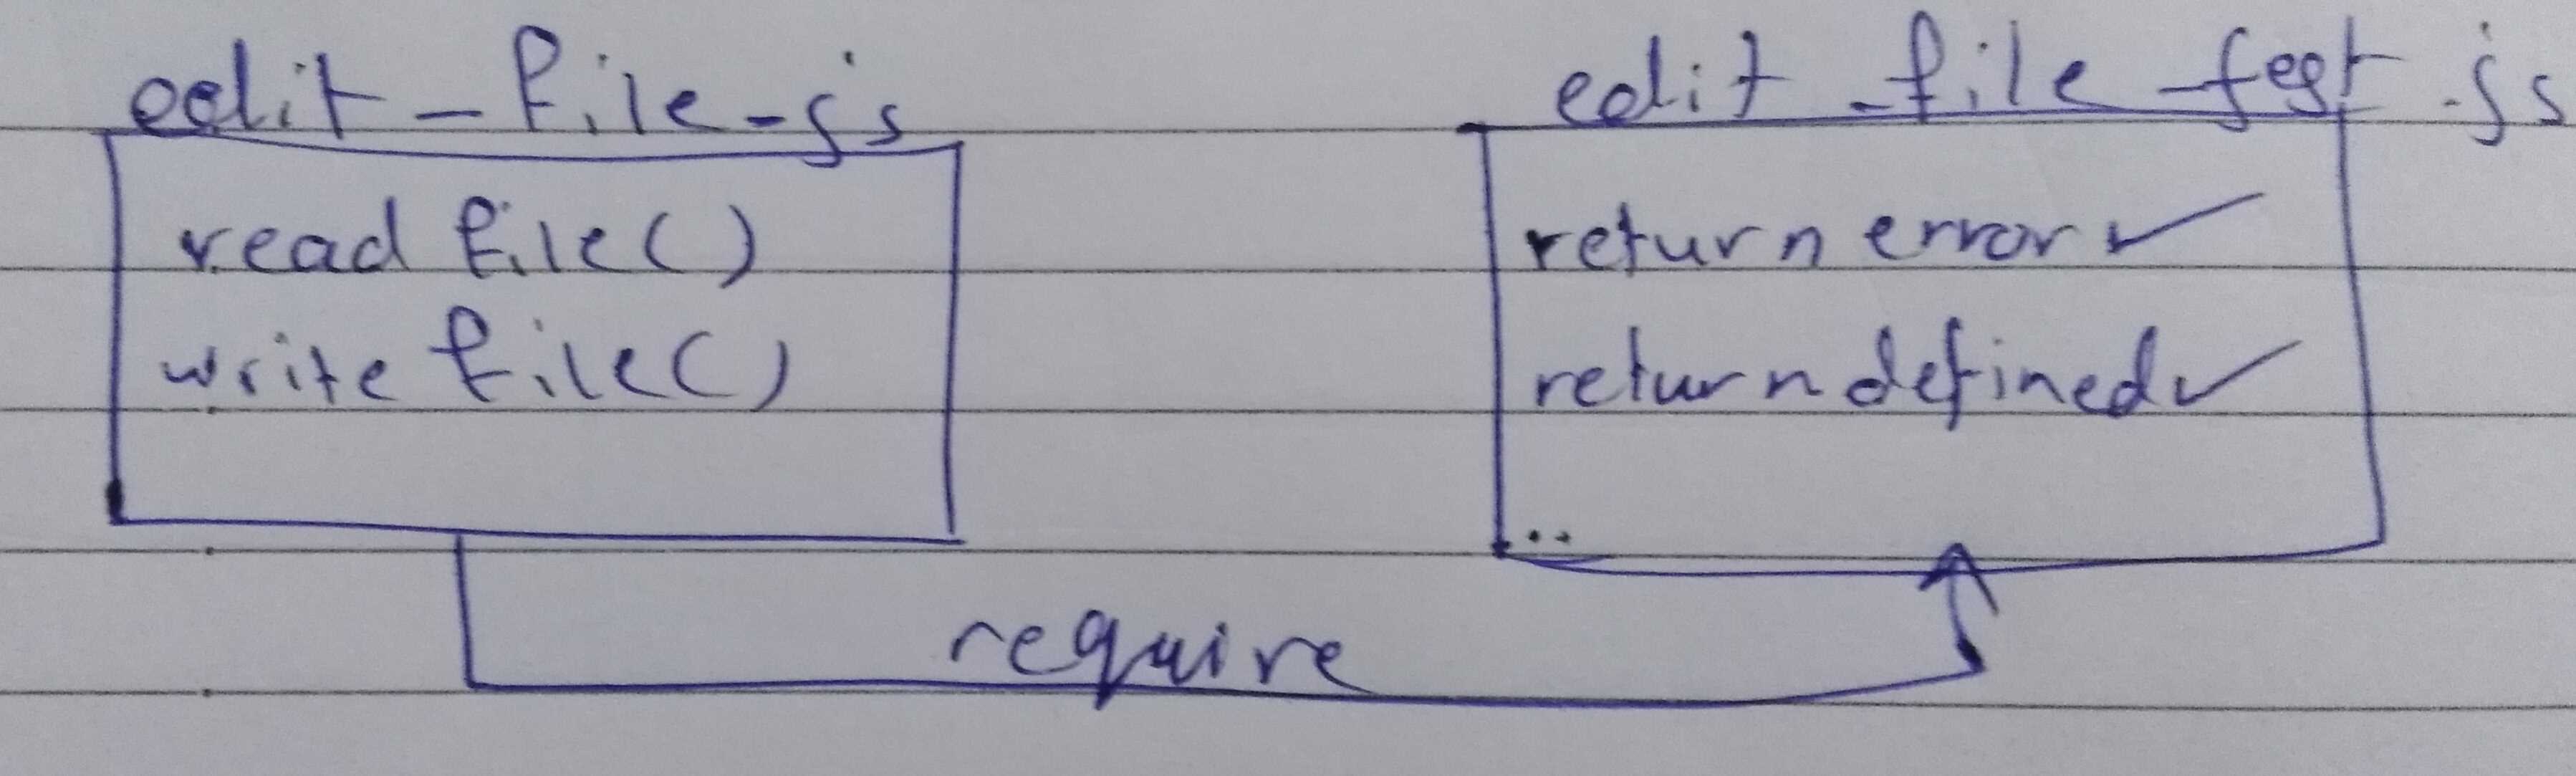 edit_file_js
read file()
write file()
edit_file_test.js
return error ✓
return defined ✓
..
require